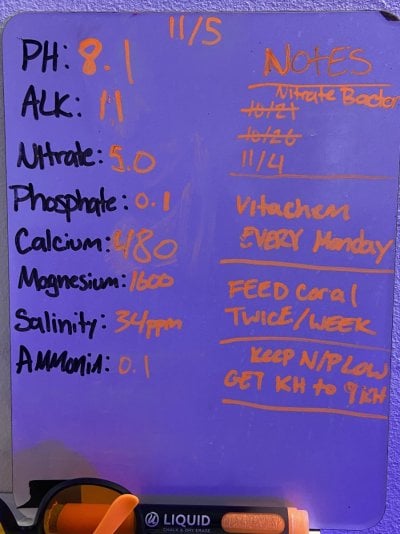 11/5
PH: 8.1
ALK: 11
Nitrate: 5.0
Phosphate: 0.1
Calcium: 480
Magnesium: 1600
Salinity: 34ppm
Ammonia: 0.1
NOTES
Nitrate Bacter
10/21
10/26
11/4
Vitachem
EVERY Monday
FEED Coral
TWICE/WEEK
KEEP N/P LOW
GET KH to 9KH
LIQUID
CHALK & DRY ERASE